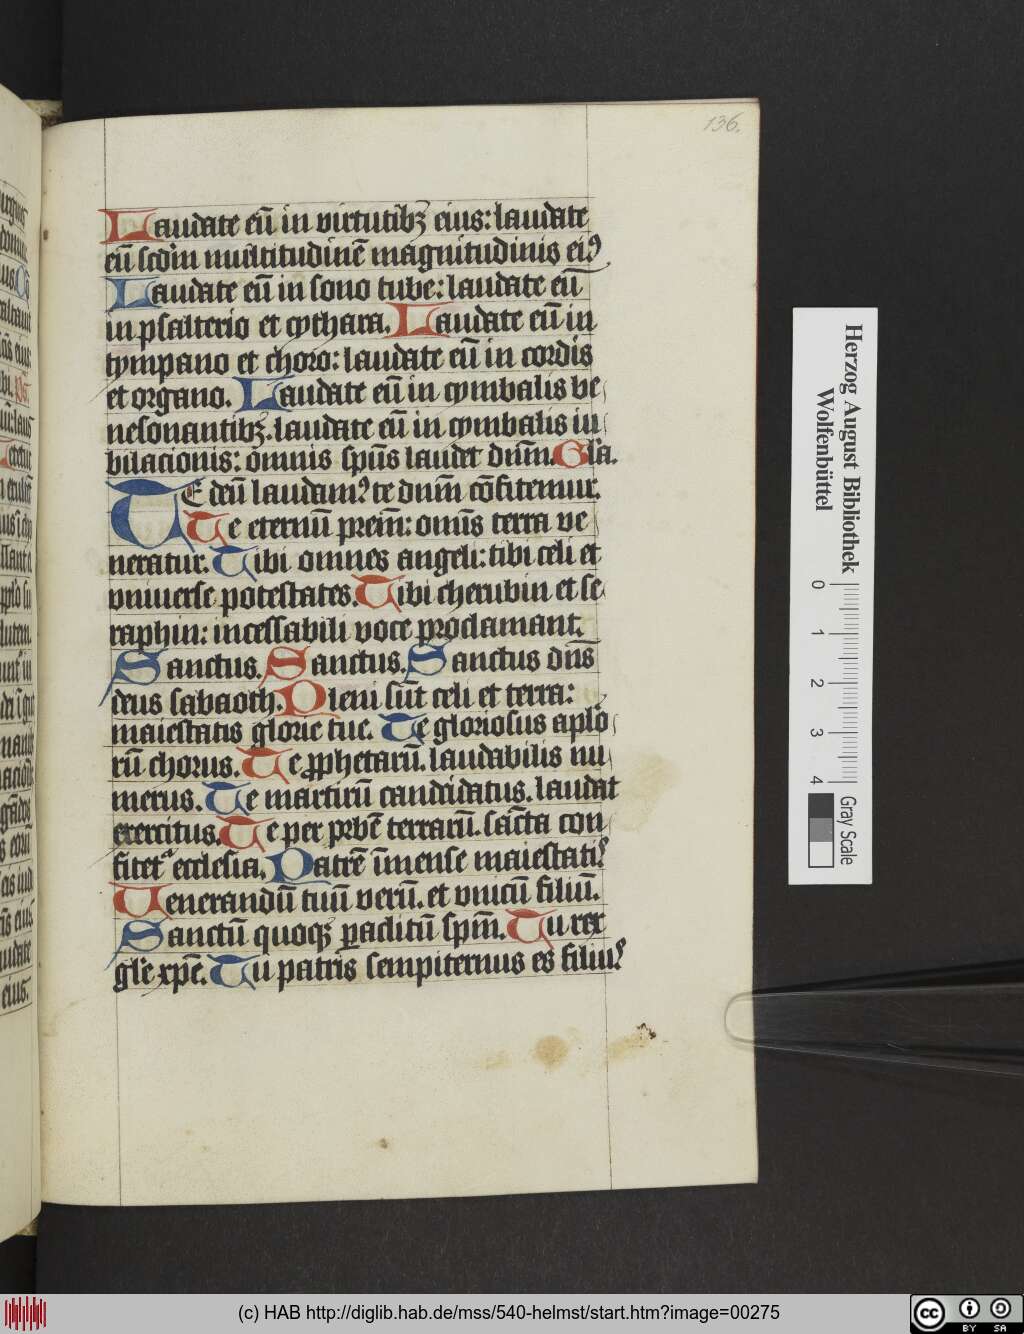 136.
Laudate eū in virtutibꝫ eius: laudate
eū scd̄m multitudinē magnitudinis eiꝰ
Laudate eū in sono tube: laudate eū
in psalterio et cythara. Laudate eū in
tympano et choro: laudate eū in cordis
et organo. Laudate eū in cymbalis be
nesonantibꝫ. laudate eū in cymbalis iu
bilacionis: omnis sp̄us laudet dn̄m. Gl̄a.
TE deū laudamꝰ te dn̄m cōfitemur.
Te eternū prem̄: omīs terra ve
neratur. Tibi omnes angeli: tibi celi et
vniuerse potestates. Tibi cherubin et se
raphin: incessabili voce proclamant.
Sanctus. Sanctus. Sanctus dn̄s
deus sabaoth. Pleni sūt celi et terra:
maiestatis glorie tue. Te gloriosus aplo
rū chorus. Te ꝓphetarū. laudabilis nu
merus. Te martirū candidatus. laudat
exercitus. Te per orbē terrarū. sācta con
fitetᵃ ecclesia. Patrē īmense maiestatiꝰ
Uenerandū tuū verū. et vnicū filiū.
Sanctū quoqꝫ ꝑaclitū sp̄m. Tu rex
gl̄e xp̄e. Tu patris sempiternus es filiuꝰ
eius.
Herzog August Bibliothek
Wolfenbüttel
0 1 2 3 4
Gray Scale
(c) HAB http://diglib.hab.de/mss/540-helmst/start.htm?image=00275
cc BY SA